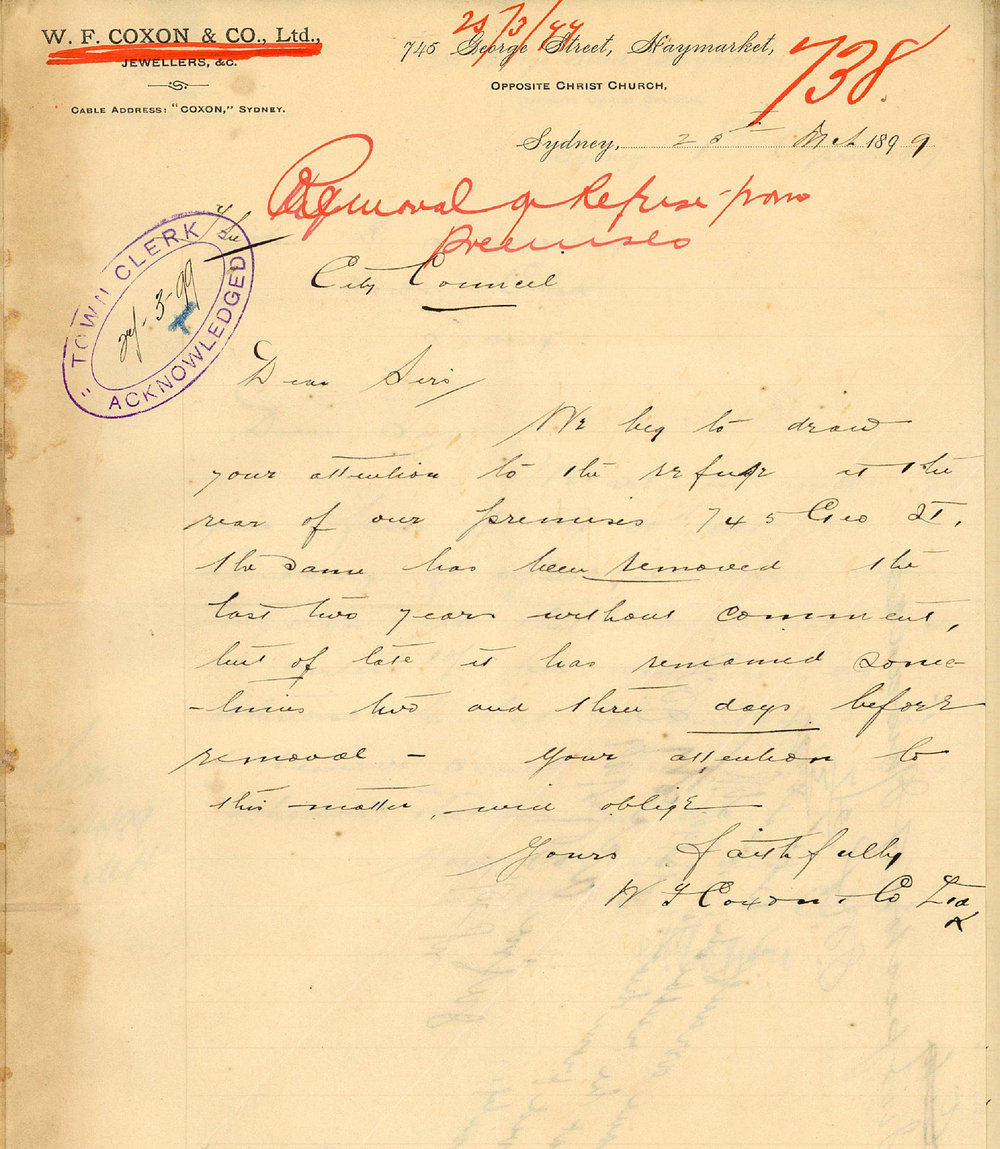 W. F. COXON & CO., Ltd.,
JEWELLERS, &C.
CABLE ADDRESS: "COXON," SYDNEY.
745 George Street, Haymarket,
OPPOSITE CHRIST CHURCH,
738.
Sydney, 1899
Removal of Refuse from
premises
TOWN CLERK
ACKNOWLEDGED
-3-99
City Council
Dear Sirs
We beg to draw
your attention to the refuse at the
rear of our premises 745 Geo St.
the same has been removed the
last two years without comment,
but of late it has remained some-
-times two and three days before
removal - your attention to
this matter, will oblige
Yours faithfully
W F Coxon & Co Ltd